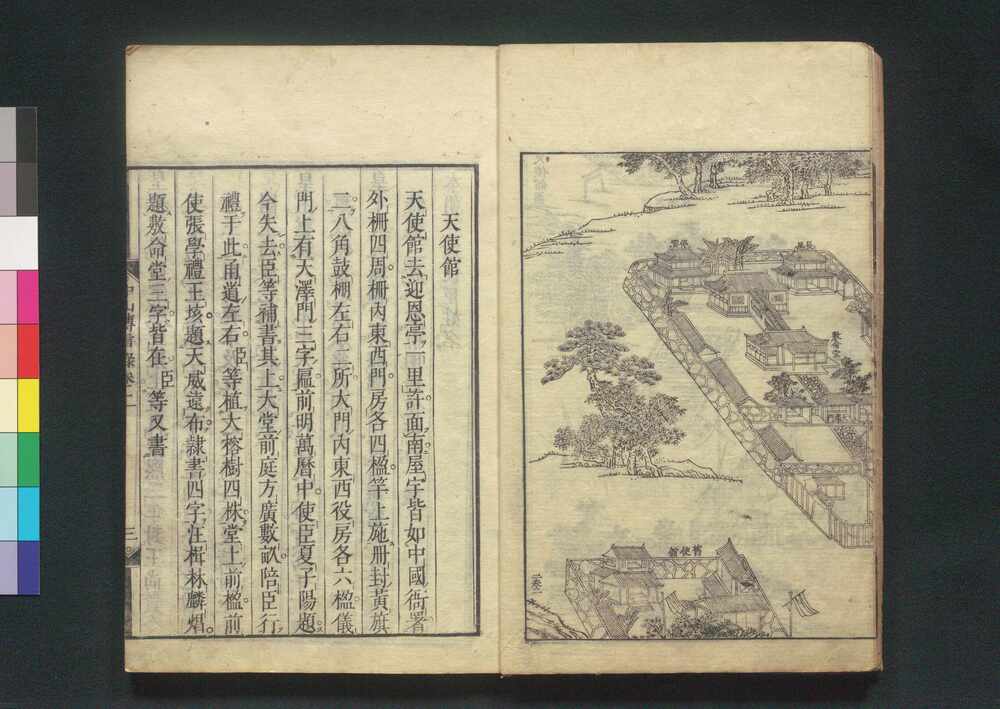 敷命堂
舊使館
天使館
天使館去迎恩亭一里許面南屋宇皆如中國衙署
外柵四周柵內東西門房各四楹竿上施册封黃旗
二八角鼓棚左右二所大門內東西役房各六楹儀
門上有天澤門三字匾前明萬曆中使臣夏子陽題
今失去臣等補書其上大堂前庭方廣數畝陪臣行
禮于此甬道左右臣等植大榕樹四株堂上前楹前
使張學禮王垓題天威遠布隷書四字汪楫林麟焻
題敷命堂三字皆在臣等又書
中山傳信錄卷二
三